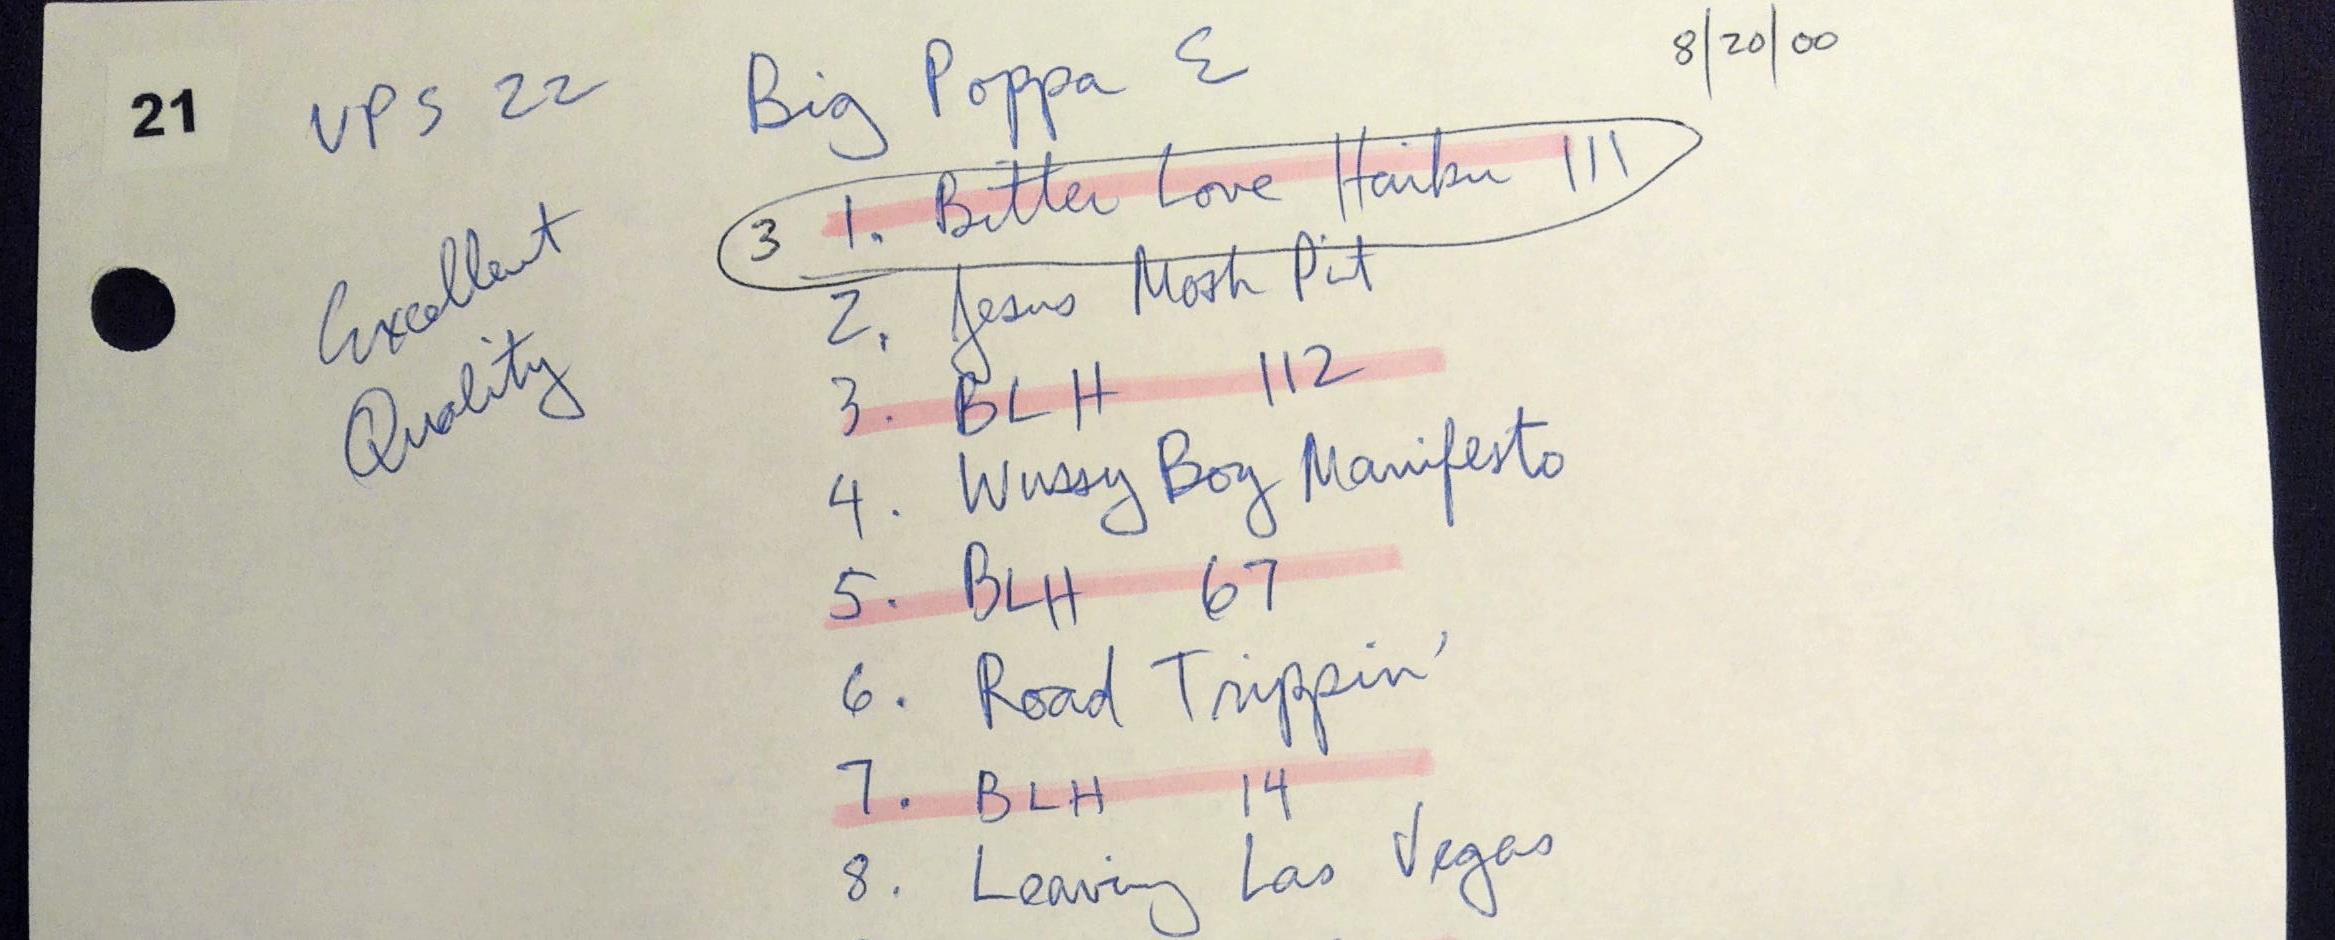 21 VPS 22 Big Poppa E 8/20/00
3 1. Bitter Love Haiku 111
2. Jesus Mosh Pit
Excellent
Quality
3. BLH 112
4. Wussy Boy Manifesto
5. BLH 67
6. Road Trippin'
7. BLH 14
8. Leaving Las Vegas